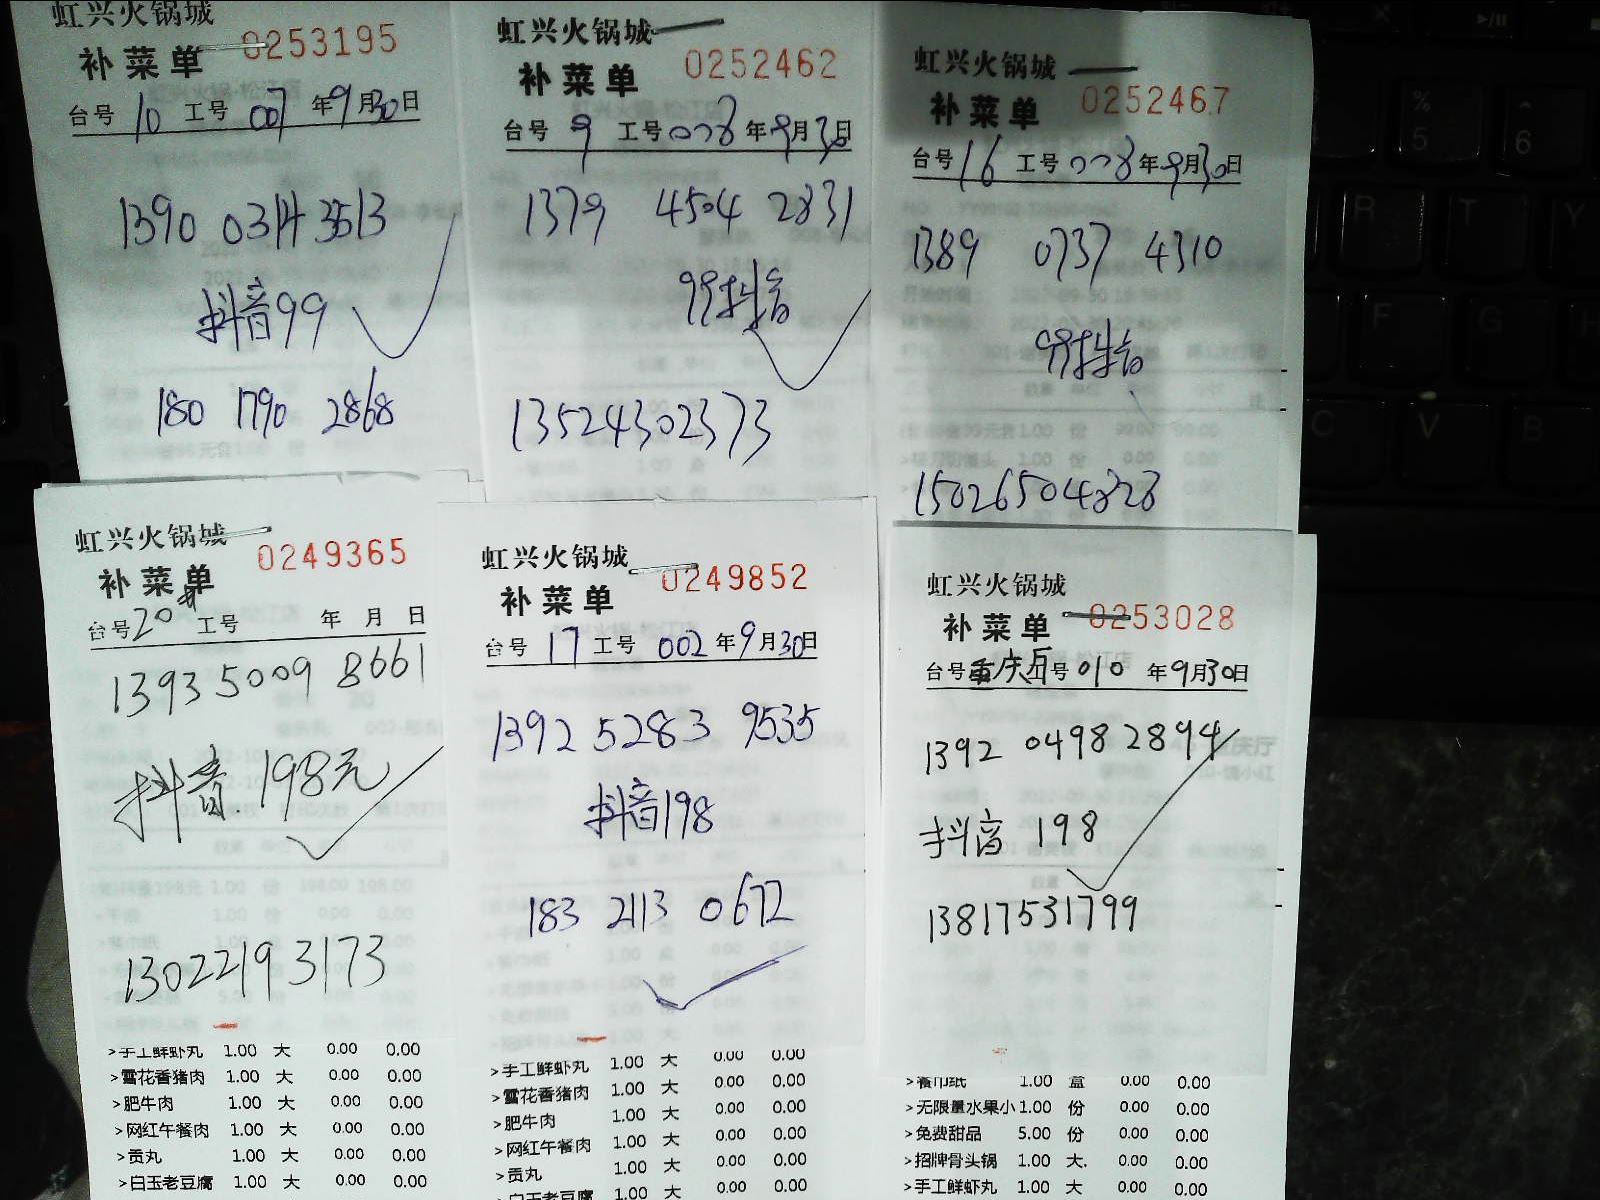 虹兴火锅城
补菜单 0253195
台号 10 工号 007 年 9 月 30 日
1390 0314 3513
抖音99
180 1790 2868
虹兴火锅城
补菜单 0252462
台号 9 工号 008 年 9 月 30 日
1379 4504 2831
99抖音
13524302373
虹兴火锅城
补菜单 0252467
台号 16 工号 008 年 9 月 30 日
1389 0737 4310
99抖音
15026504828
虹兴火锅城
补菜单 0249365
台号 20 工号 年 月 日
1393 5009 8661
抖音 198元
13022193173
>手工鲜虾丸 1.00 大 0.00 0.00
>雪花香猪肉 1.00 大 0.00 0.00
>肥牛肉 1.00 大 0.00 0.00
>网红午餐肉 1.00 大 0.00 0.00
>贡丸 1.00 大 0.00 0.00
>白玉老豆腐 1.00 大 0.00 0.00
虹兴火锅城
补菜单 0249852
台号 17 工号 002 年 9 月 30 日
1392 5283 9535
抖音198
183 2113 0672
>手工鲜虾丸 1.00 大 0.00 0.00
>雪花香猪肉 1.00 大 0.00 0.00
>肥牛肉 1.00 大 0.00 0.00
>网红午餐肉 1.00 大 0.00 0.00
>贡丸 1.00 大 0.00 0.00
>白玉老豆腐 1.00 大 0.00 0.00
虹兴火锅城
补菜单 0253028
台号 重庆厅 工号 010 年 9 月 30 日
1392 0498 2894
抖音 198
13817531799
>餐巾纸 1.00 盒 0.00 0.00
>无限量水果小 1.00 份 0.00 0.00
>免费甜品 5.00 份 0.00 0.00
>招牌骨头锅 1.00 大. 0.00 0.00
>手工鲜虾丸 1.00 大 0.00 0.00